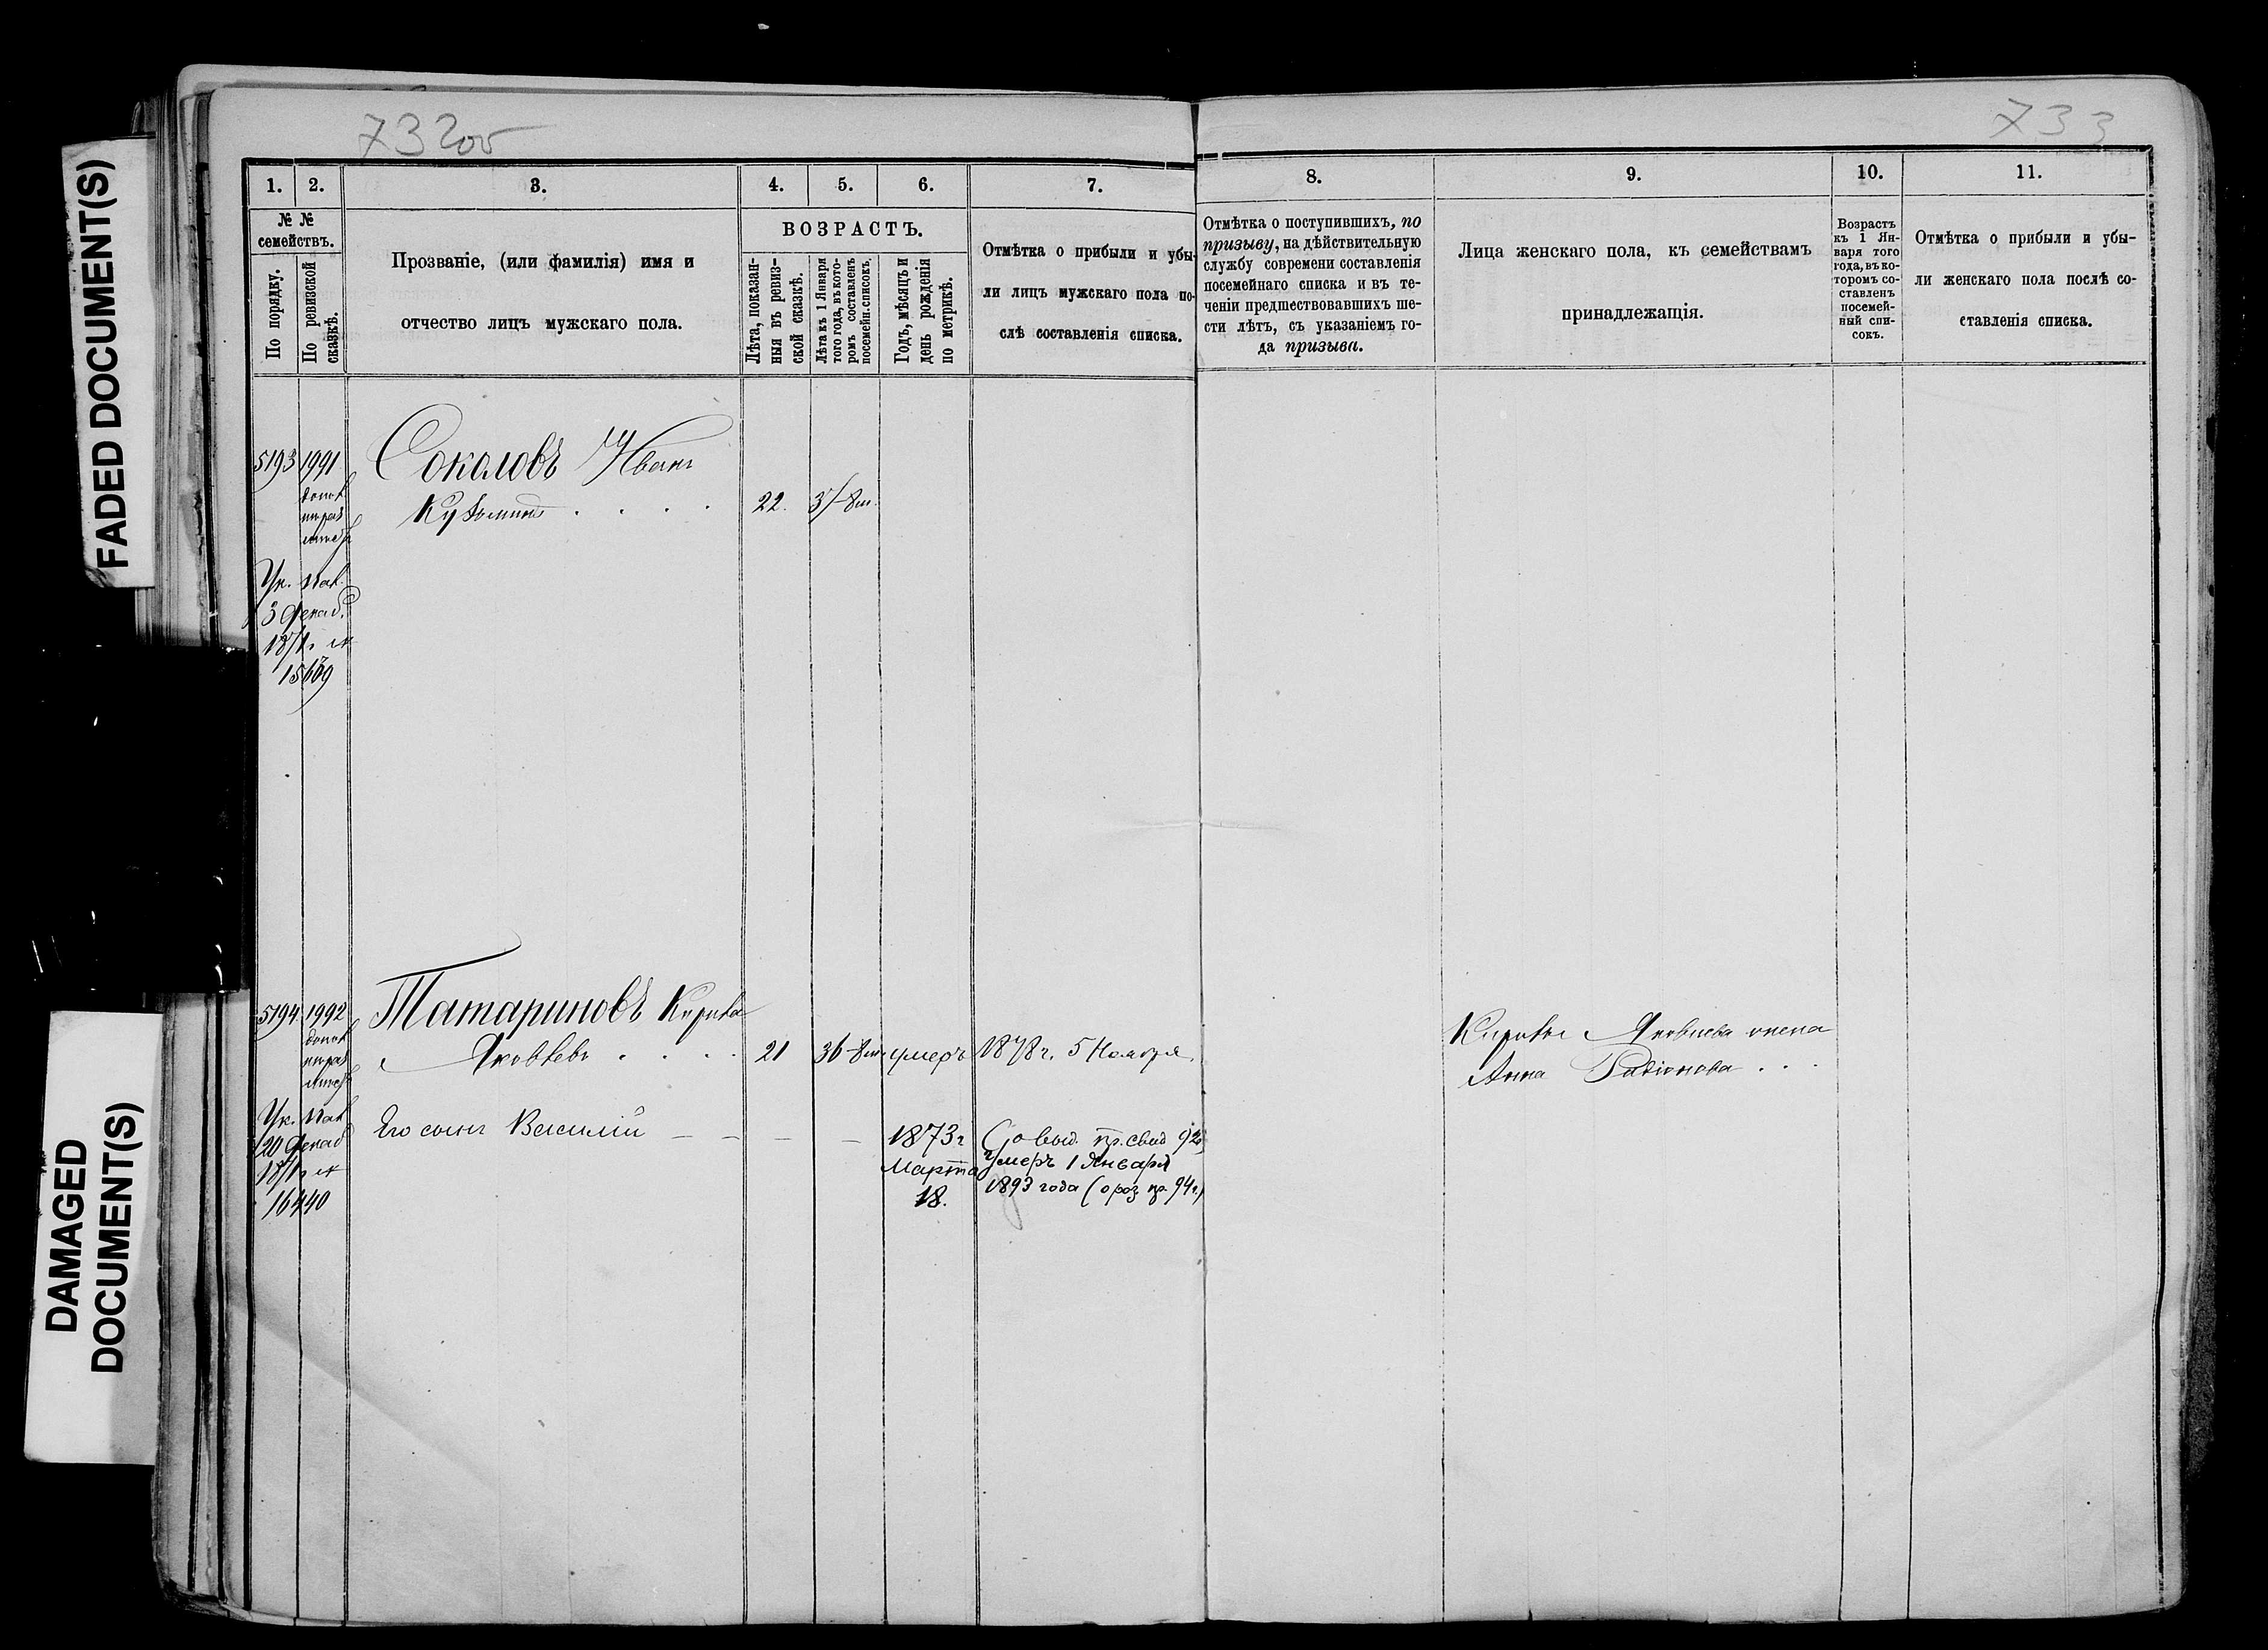 FADED DOCUMENT(S)
DAMAGED
DOCUMENT(S)
732об
733
1.
2.
3.
4.
5.
6.
7.
8.
9.
10.
11.
№ №
семействъ.
По порядку.
По ревизской
сказкѣ.
Прозваніе, (или фамилія) имя и
отчество лицъ мужскаго пола.
ВОЗРАСТЪ.
Лѣта, показан-
ныя въ ревиз-
ской сказкѣ.
Лѣта къ 1 Января
того года, въ кото-
ромъ составленъ
посемейн. списокъ.
Годъ, мѣсяцъ и
день рожденія
по метрикѣ.
Отмѣтка о прибыли и убы-
ли лицъ мужскаго пола по-
слѣ составленія списка.
Отмѣтка о поступившихъ, по
призыву, на дѣйствительную
службу современи составленія
посемейнаго списка и въ те-
ченіи предшествовавшихъ ше-
сти лѣтъ, съ указаніемъ го-
да призыва.
Лица женскаго пола, къ семействамъ
принадлежащія.
Возрастъ
къ 1 Ян-
варя того
года, въ ко-
торомъ со-
ставленъ
посемей-
ный спи-
сокъ.
Отмѣтка о прибыли и убы-
ли женскаго пола послѣ со-
ставленія списка.
5193 1991 Соколовъ Иванъ
Кузьминъ . . . . 22. 37-8м.
Ук. Паl.
3 Декаб.
1871г №
15669
5194 1992 Татариновъ Кирила
Яковлевъ . . . . 21 36-8м. умеръ 1878г. 5 Ноября.
Кирилы Яковлева жена
Анна Радіонова . . .
Ук.
20 Декаб
1871г №
16440
Его сынъ Василій — — — — 1873г
Марта
18.
пр. свид 92
Умеръ 1 Января
1893 года ( о роз пр 94г.)